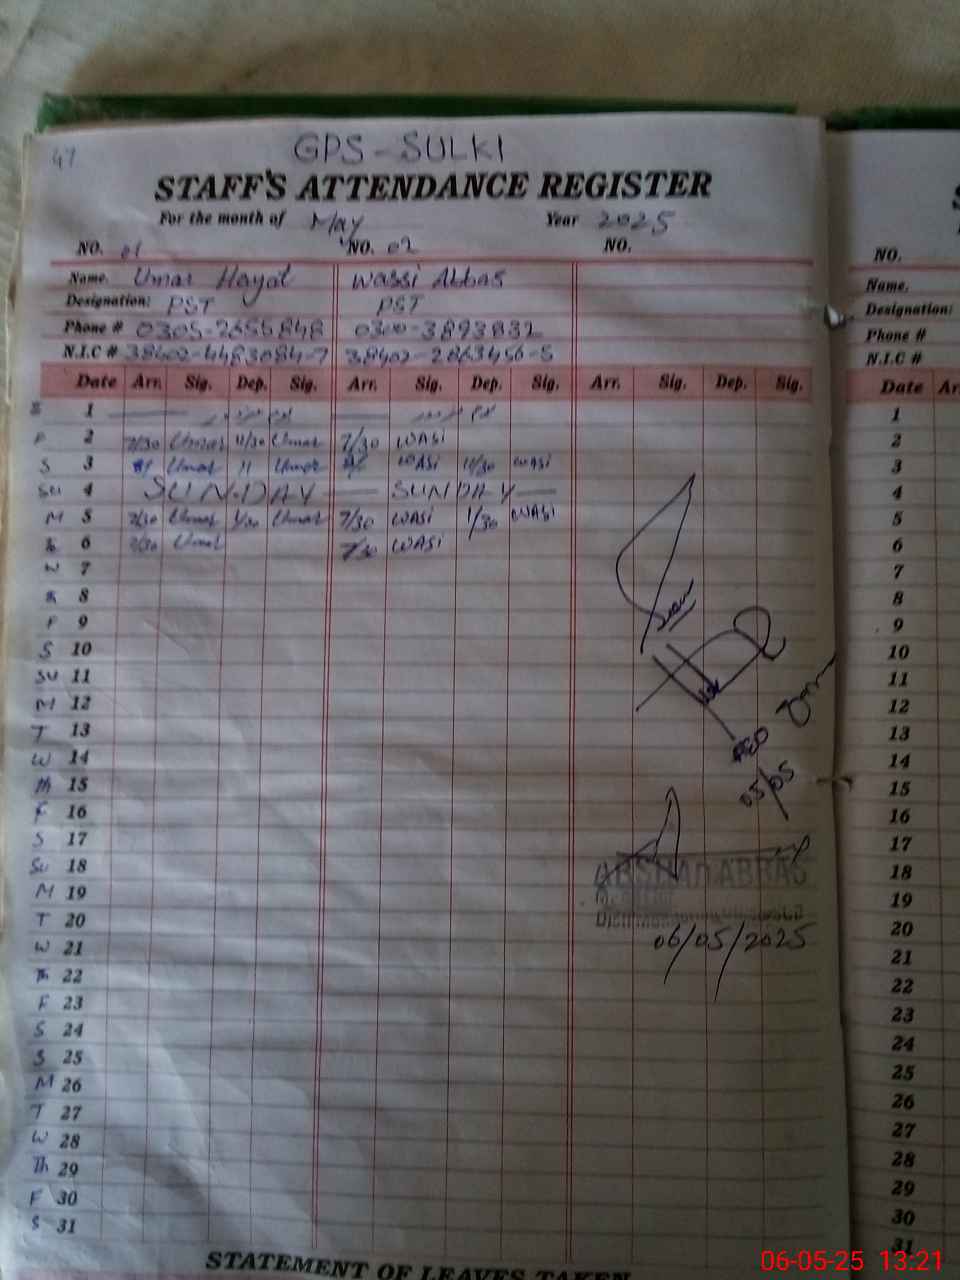 47
GPS - SULKI
STAFF'S ATTENDANCE REGISTER
For the month of May Year 2025
NO. 01 NO. 02 NO.
Name. Umar Hayat Wassi Abbas
Designation: PST PST
Phone # 0305-2656848 0300-3893832
N.I.C # 38402-4483084-7 38402-2863456-5
Date Arr. Sig. Dep. Sig. Arr. Sig. Dep. Sig. Arr. Sig. Dep. Sig.
1
F 2 7/30 Umar 11/30 Umar 7/30 WASi
S 3 Umar 11 Umar WASi 11/30 WASi
SU 4 SUNDAY SUNDAY
M 5 7/30 Umar 1/30 Umar 7/30 WASi 1/30 WASi
6 7/30 Umar 7/30 WASi
W 7
8
F 9
S 10
SU 11
M 12
T 13
W 14
Th 15
F 16
S 17
SU 18
M 19
T 20
W 21
Th 22
F 23
S 24
S 25
M 26
T 27
W 28
Th 29
F 30
S 31
AEO
05/05
ABBAS
06/05/2025
STATEMENT OF LEAVES TAKEN
NO.
Name.
Designation:
Phone #
N.I.C #
Date
1
2
3
4
5
6
7
8
9
10
11
12
13
14
15
16
17
18
19
20
21
22
23
24
25
26
27
28
29
30
31
06-05-25 13:21